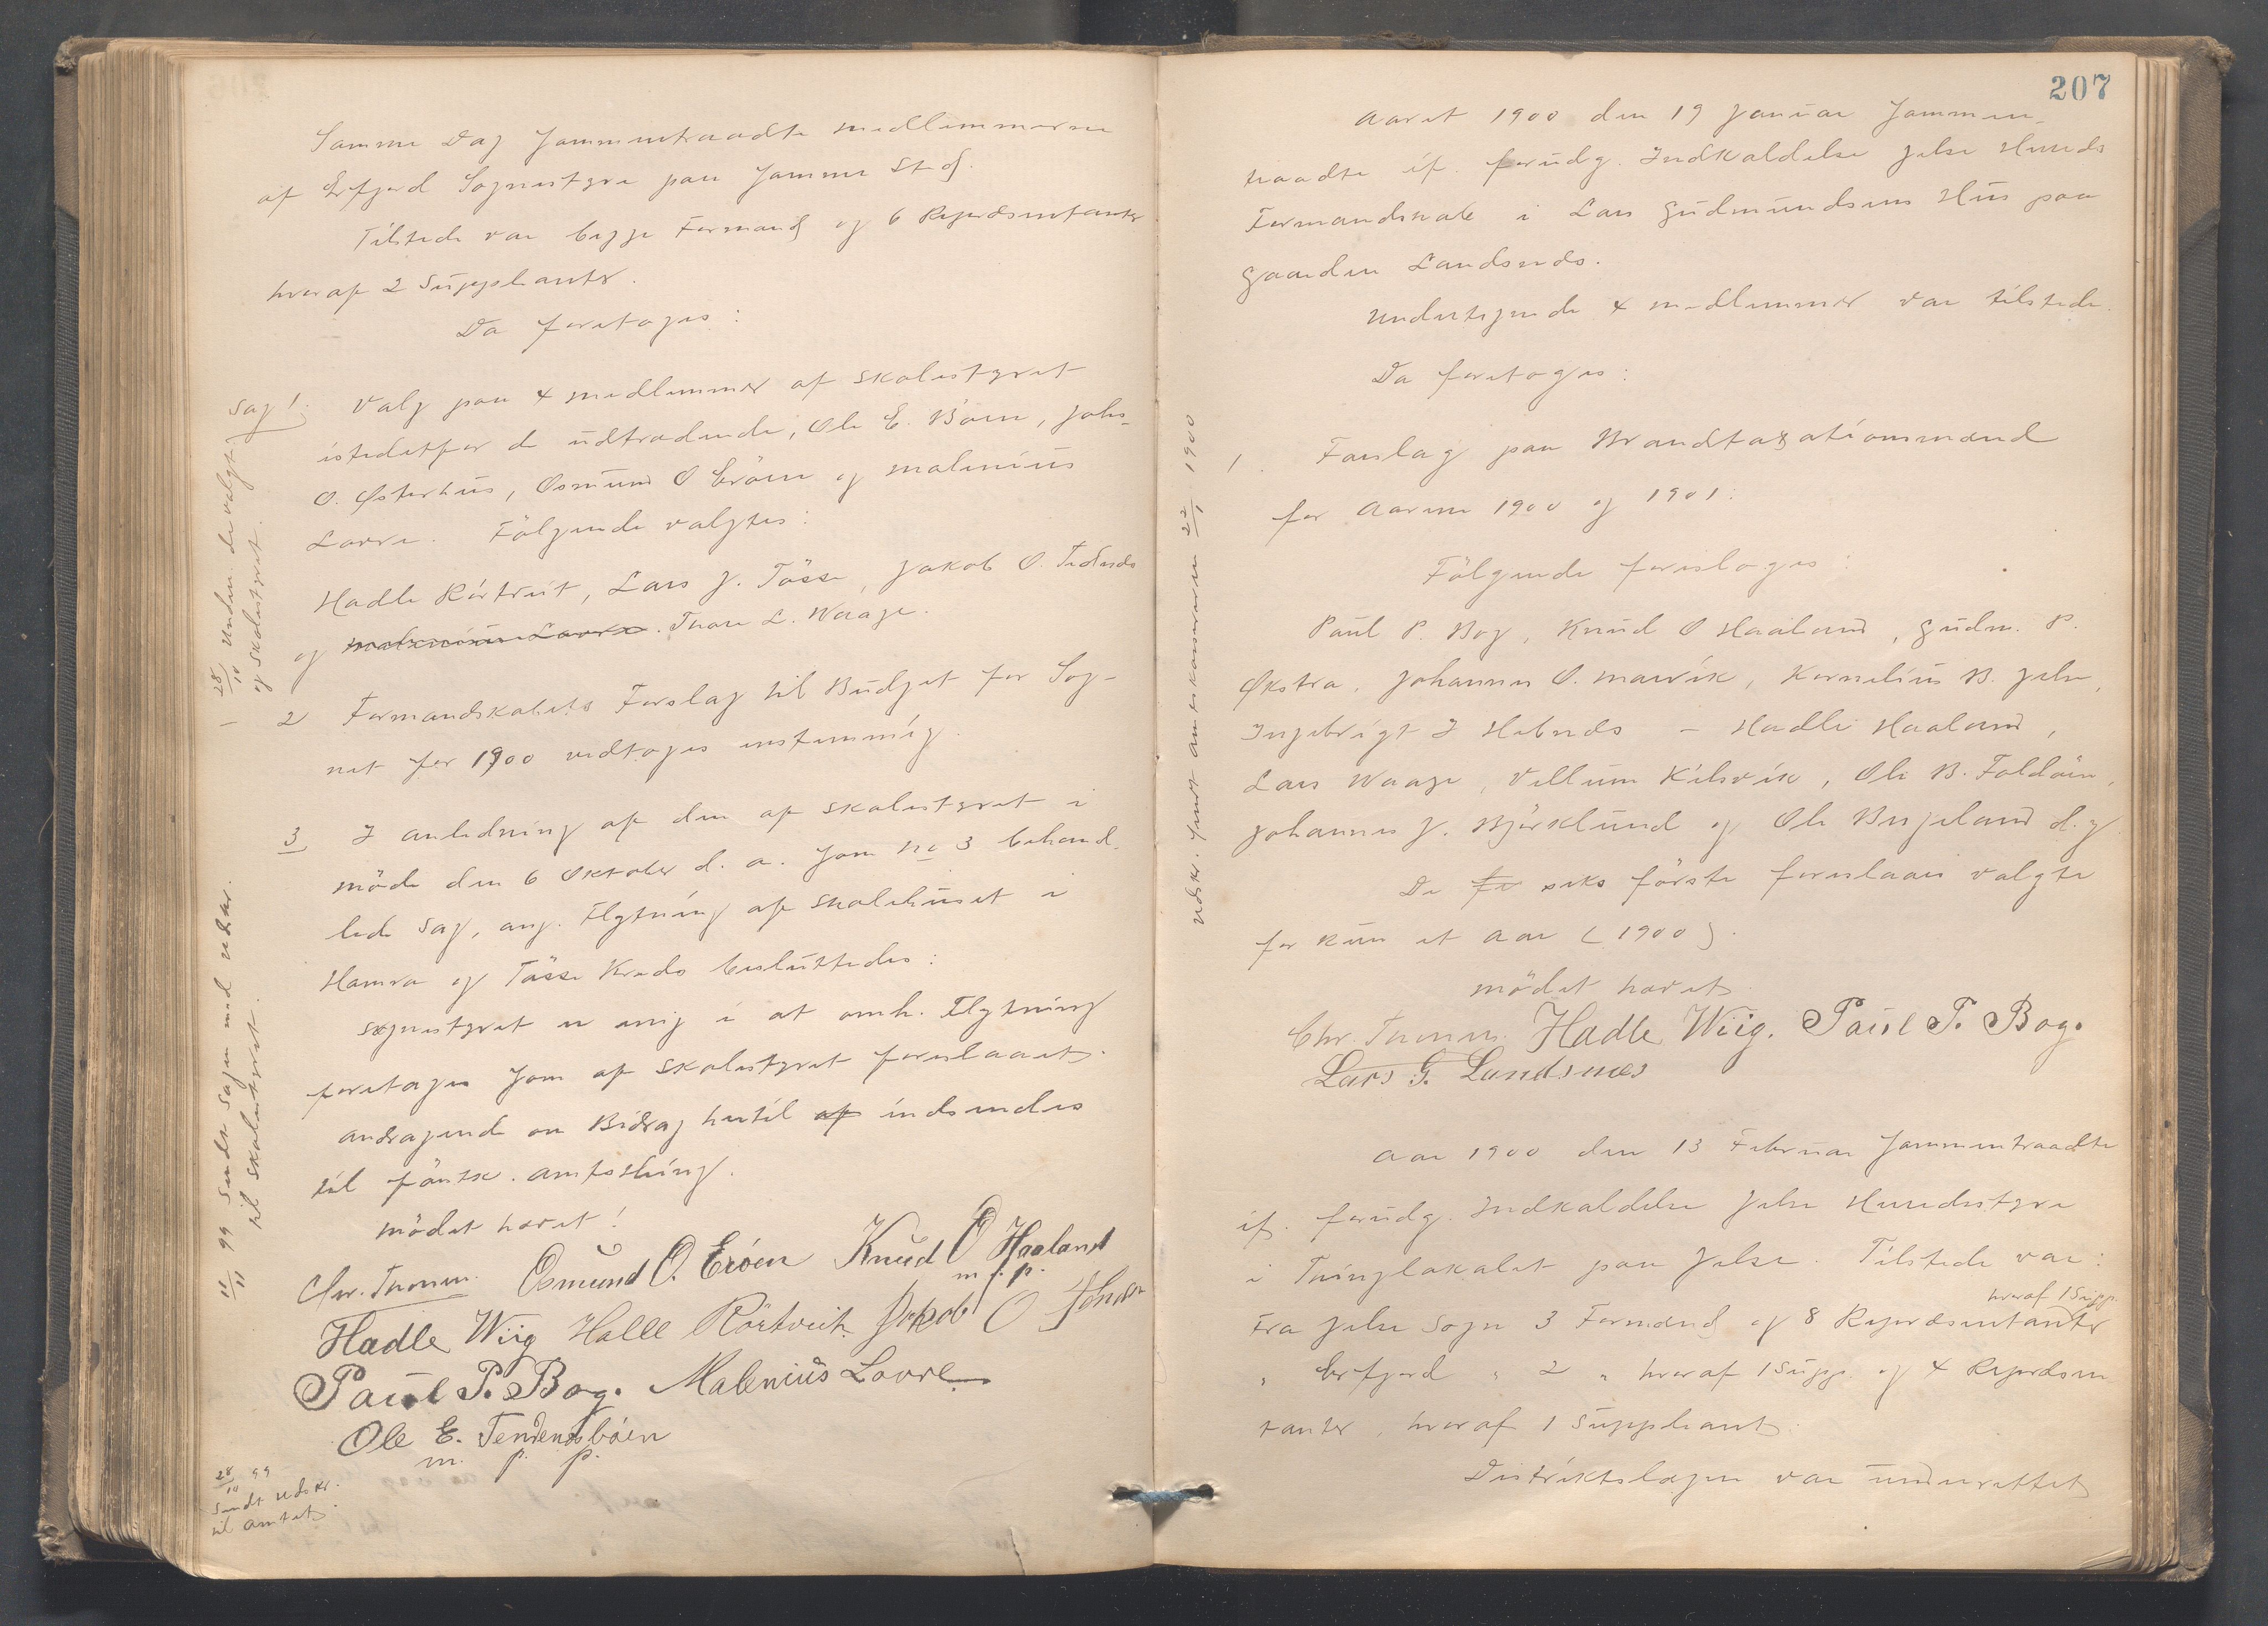 Samme Dag sammentraadte medlemmerne
af Erfjord Sognestyre paa samme Sted.
Tilstede var begge Formænd og 6 Repræsentanter
hvoraf 2 Suppleanter.
Da foretoges:
Sag 1. Valg paa 4 medlemmer af Skolestyret
istedetfor de udtrædende, Ole E. Bøen, Johs
O. Østerhus, Osmund O Erøen og Malenius
Lovra. Følgende valgtes:
Hadle Rörtveit, Lars J. Tösse, Jakob O.
og Malenius Lovra. Thore L. Waage.
2 Formandskabets Forslag til Budget for Sog-
net for 1900 vedtoges enstemmig.
3 I anledning af den af Skolestyret i
möde den 6 Oktober d. a. som No 3 behand-
lede Sag, ang. Flytning af Skolehuset i
Hamra og Tösse Kreds besluttedes:
Sognestyret er enig i at omh. Flytning
foretages som af Skolestyret foreslaaet.
Andragende om Bidrag hertil af indsendes
til förstk. Amtsthing.
Mödet hævet!
Chr. Thomsen. Osmund O. Eröen Knud O Haaland
m. f. p.
Hadle Wiig Halle Rörtveit Jakob O
Paul P. Bog. Malenius Lovre
Ole E. Tendenesbøen
m. p. p.
28/10 Underr. de valgte
og skolestyret.
11/11 99 Sendt Sagen med Udskr.
til Skolestyret.
28/10 99
Sendt Udskr.
til Amtet.
207
Aaret 1900 den 19 Januar sammen-
traadte ef. forudg. Indkaldelse Jelse Herreds
Formandskab i Lars Gudmundsens Hus paa
Gaarden Landsnes.
Undertegnede 4 medlemmer var tilstede.
Da foretoges:
1. Forslag paa Brandtaxationsmænd
for Aarene 1900 og 1901.
Følgende foresloges:
Paul P. Bog, Knud O Haaland, Gudm. P.
Økstra, Johannes O. Marvik, Kornelius B. Jelse,
Ingebrigt I Hebnes – Hadle Haaland,
Lars Waage, Vellum Kilsvik, Ole B. Foldöen,
Johannes J. Björklund og Ole Bergeland d.y.
De seks förste foreslaaes valgte
for kun et Aar (1900).
mödet hævet
Chr. Thomsen. Hadle Wiig. Paul P. Bog.
Lars G. Landsnes
Udskr. sendt Amtskontoret 22/1 1900
Aar 1900 den 13 Februar sammentraadte
ef. forudg. Indkaldelse Jelse Herredsstyre
i Thinglokalet paa Jelse. Tilstede var:
hvoraf 1 Supp.
Fra Jelse Sogn 3 Formænd og 8 Repræsentanter
" Erfjord " 2 " hvoraf 1 Supp. og 4 Repræsen-
tanter, hvoraf 1 Suppleant.
Distriktslægen var underrettet